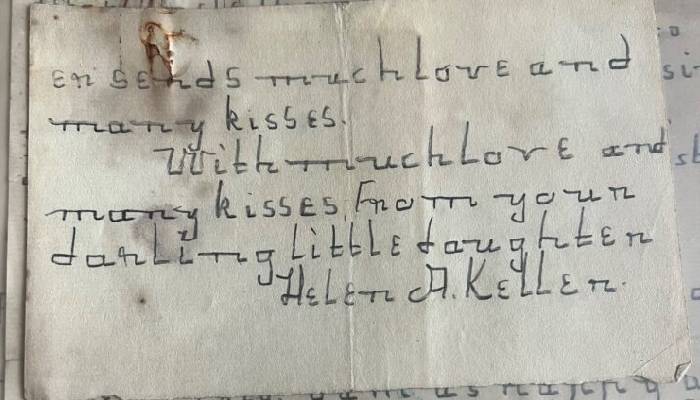 er sends much love and
many kisses.
With much love and
many kisses, from your
darling little daughter
Helen A. Keller.